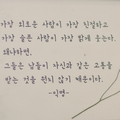 가장 외로운 사람이 가장 친절하고
가장 슬픈 사람이 가장 밝게 웃는다.
왜냐하면,
그들은 남들이 자신과 같은 고통을
받는 것을 원치 않기 때문이다.
-익명-